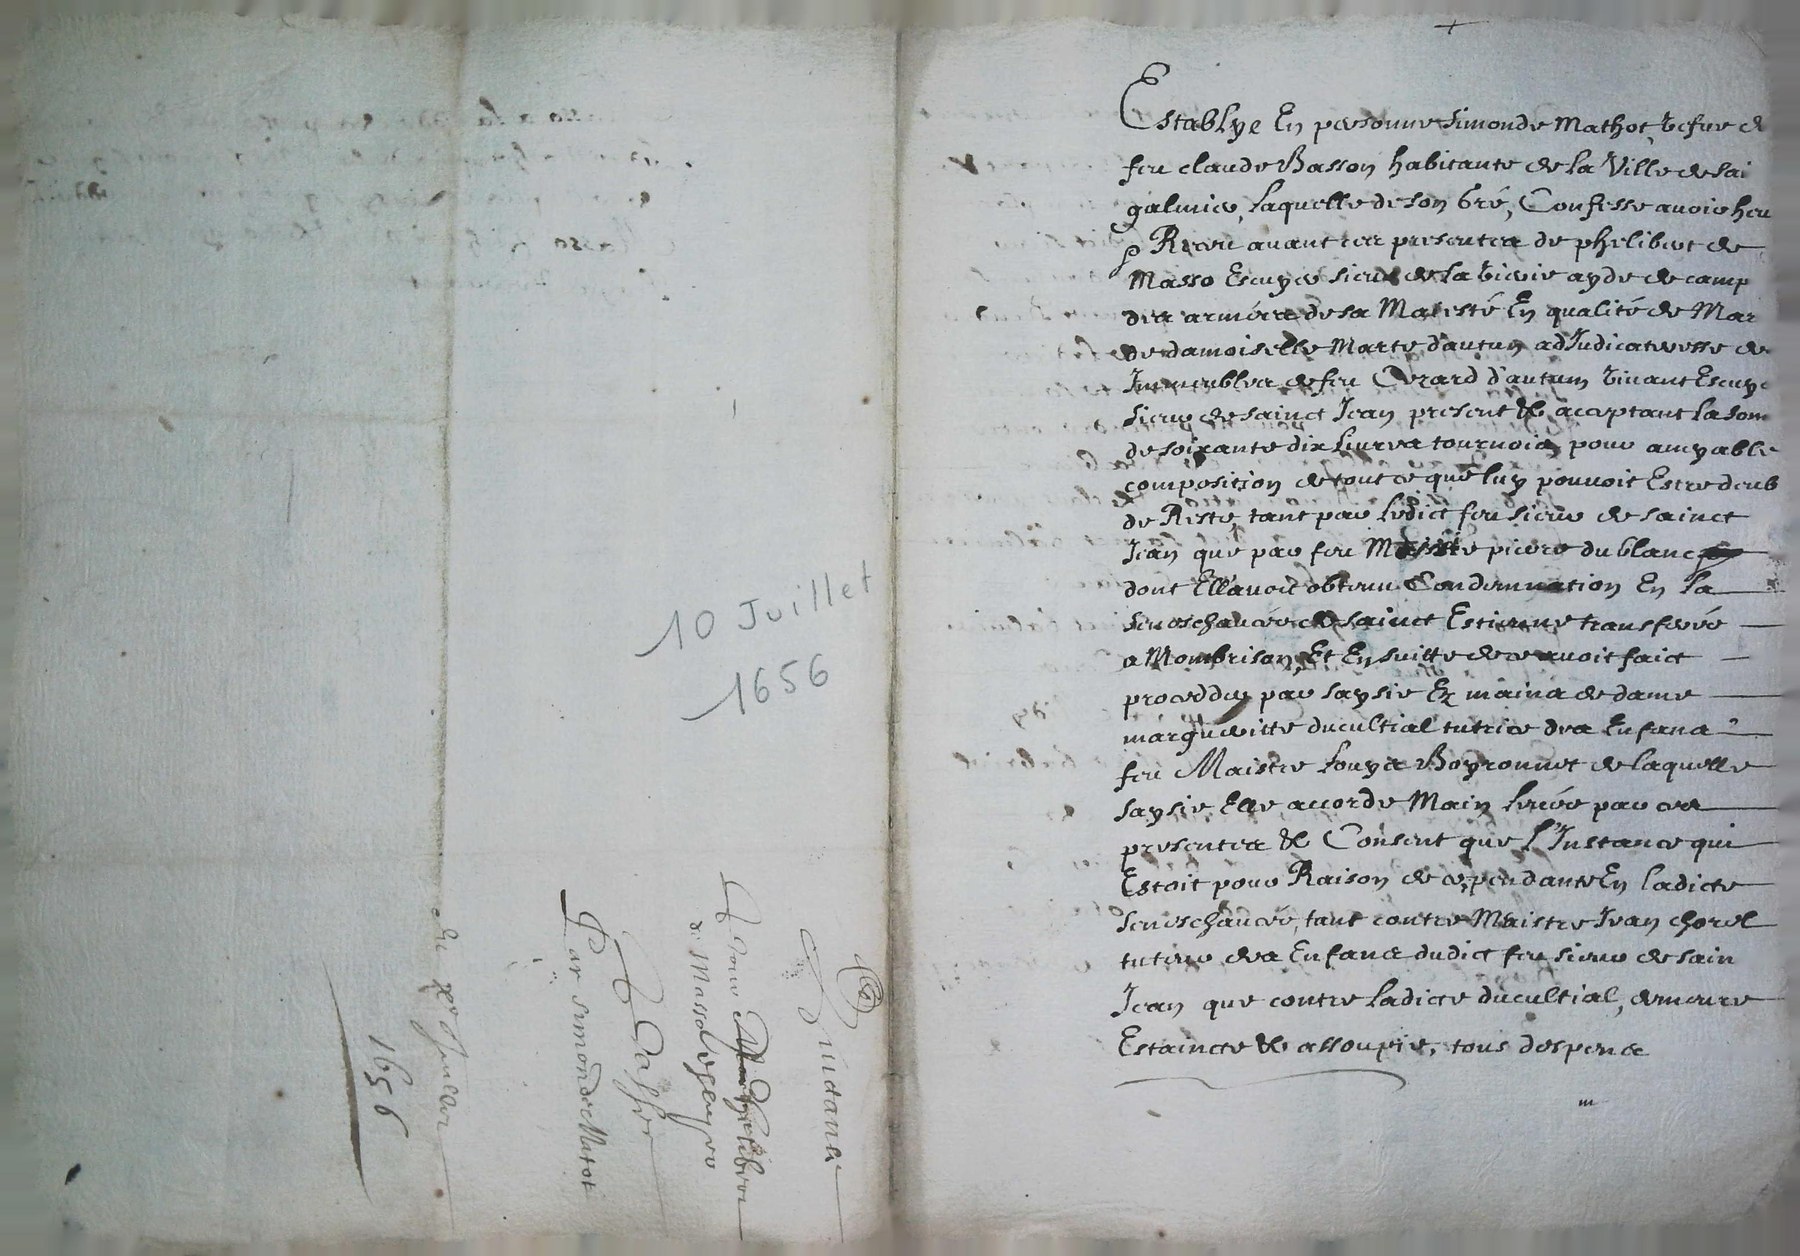 10 Juillet
1656
Quictance
Pour Phelibert
de Masso escuyer
Passée
Par simonde Matot
du xe Juillet
1656
Establye En personne Simonde Mathot vefve de
feu claude Basson habitante de la Ville de sai
galmier, Laquelle de son Gré, Confesse avoir heu
& Receu avant ces presentes de phelibert de
Masso Escuyer sieur de la ayde de camp
des armées de sa Maiesté En qualité de Mar
de damoiselle Marte d'autun adJudicateresse de
Immeubles de feu Erard d'autun vivant Escuye
sieur de sainct Jean present & acceptant la som
de soixante dix Livres tournois, pour amyable
composition de tout ce que luy pouvoit Estre deub
de Reste, tant par ledict feu sieur de sainct
Jean que par feu Maistre pierre du blanc
dont Ell'avoit obtenu Condemnation En la
seneschaucée de sainct Estienne transferée
a Mombrison, Et En suitte de ce avoit faict
procedder par saysie Ez mains de dame
margueritte ducultial tutrice des Enfans
feu Maistre Louys Boyronnet de laquelle
saysie, Elle accorde Main levée par ces
presentes & Consent que l'Instance qui
Estoit pour Raison de ce, pendante En ladicte
seneschaucée, tant contre Maistre Jean chorel
tuteur des Enfans dudict feu sieur de sain
Jean que contre ladicte ducultial, demeure
Estaincte & assoupie, tous despens